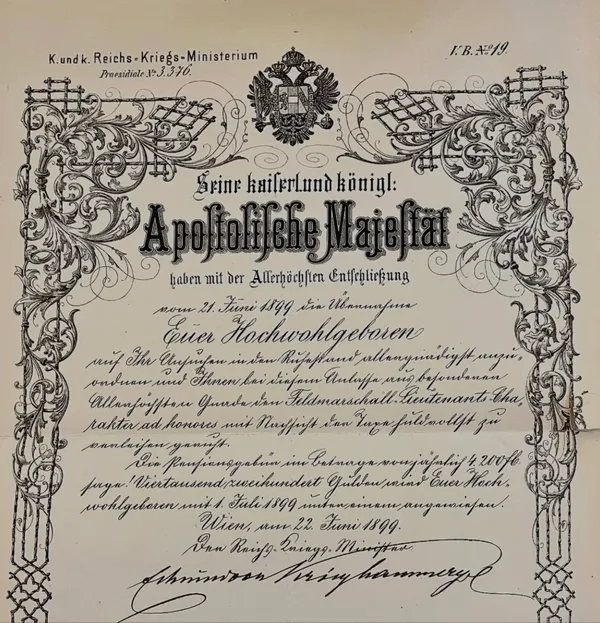 K. und k. Reichs-Kriegs-Ministerium
Praesidiale No 3.376.
V. B. No 19.
Seine kaiserl. und königl:
Apostolische Majestät
haben mit der Allerhöchsten Entschließung
vom 21. Juni 1899 die Übernahme
Euer Hochwohlgeboren
auf Ihr Ansuchen in den Ruhestand allergnädigst anzu-
ordnen und Ihnen bei diesem Anlasse aus besonderer
Allerhöchsten Gnade den Feldmarschall-Lieutenants-Cha-
rakter ad honores mit Nachsicht der Taxe huldvollst zu
verleihen geruht.
Die Pensionsgebür im Betrage von jährlich 4.200 fl.
sage: Viertausendzweihundert Gulden, wird Euer Hoch-
wohlgeboren mit 1. Juli 1899 unter einem angewiesen.
Wien, am 22. Juni 1899.
Der Reichs-Kriegs-Minister